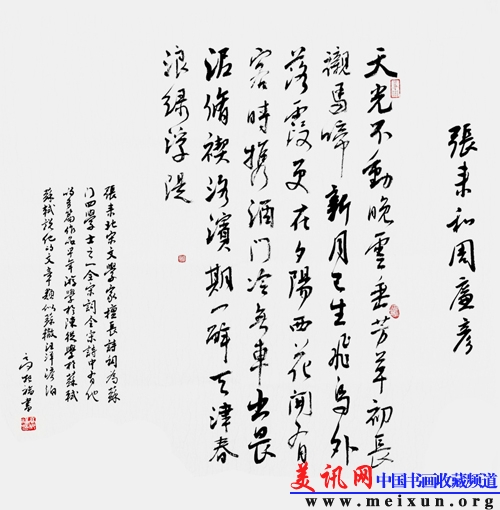 張耒和周廉彦
天光不動晚雲垂芳草初長
襯馬啼新月已生飛鳥外
落霞更在夕陽西花開有
客時携酒门冷無車出畏
泥脩禊洛濱期一醉天津春
浪绿浮堤
張耒北宋文學家擅長詩詞为蘇
门四學士之一全宋詞全宋詩中有他
的多篇作品早年游學於陳從學於蘇軾
蘇軾説他的文章類似蘇轍汪洋澹泊
書
美讯网中国书画收藏频道
www.meixun.org